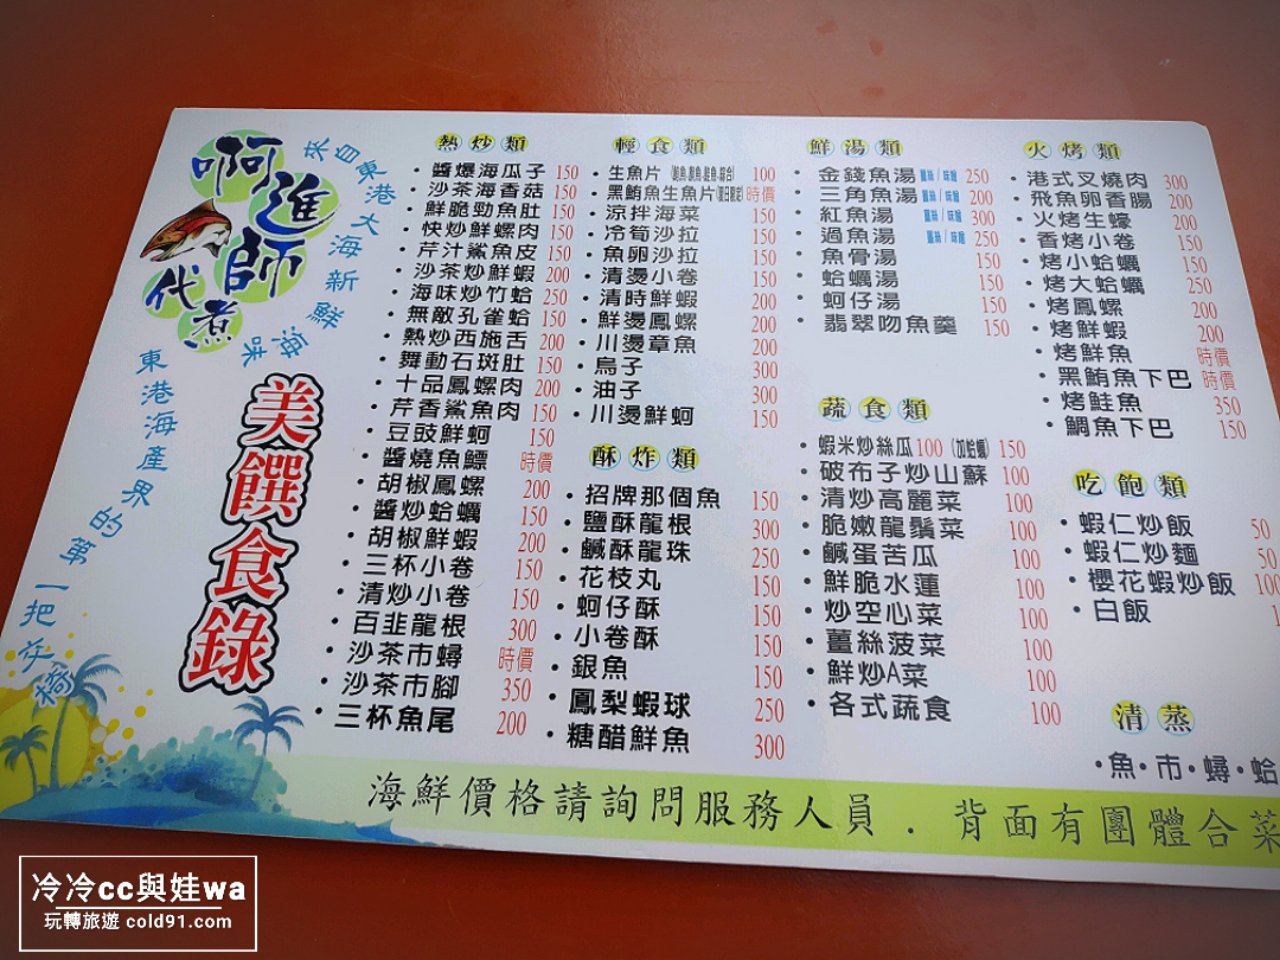 啊進師
代煮
來自東港大海新鮮海味
東港海產界的第一把交椅
美饌食錄
熱炒類
・醬爆海瓜子 150
・沙茶海香菇 150
・鮮脆勁魚肚 150
・快炒鮮螺肉 150
・芹汁鯊魚皮 150
・沙茶炒鮮蝦 200
・海味炒竹蛤 250
・無敵孔雀蛤 150
・熱炒西施舌 200
・舞動石斑肚 150
・十品鳳螺肉 200
・芹香鯊魚肉 150
・豆豉鮮蚵 150
・醬燒魚鰾 時價
・胡椒鳳螺 200
・醬炒蛤蠣 150
・胡椒鮮蝦 200
・三杯小卷 150
・清炒小卷 150
・百韭龍根 300
・沙茶市蟳 時價
・沙茶市腳 350
・三杯魚尾 200
輕食類
・生魚片 100
・黑鮪魚生魚片 時價
・涼拌海菜 150
・冷筍沙拉 150
・魚卵沙拉 150
・清燙小卷 150
・清時鮮蝦 200
・鮮燙鳳螺 200
・川燙章魚 200
・烏子 300
・油子 300
・川燙鮮蚵 150
酥炸類
・招牌那個魚 150
・鹽酥龍根 300
・鹹酥龍珠 250
・花枝丸 150
・蚵仔酥 150
・小卷酥 150
・銀魚 150
・鳳梨蝦球 250
・糖醋鮮魚 300
鮮湯類
・金錢魚湯 薑絲/味噌 250
・三角魚湯 薑絲/味噌 200
・紅魚湯 薑絲/味噌 300
・過魚湯 薑絲/味噌 250
・魚骨湯 150
・蛤蠣湯 150
・蚵仔湯 150
・翡翠吻魚羹 150
蔬食類
・蝦米炒絲瓜 100 (加蛤蠣) 150
・破布子炒山蘇 100
・清炒高麗菜 100
・脆嫩龍鬚菜 100
・鹹蛋苦瓜 100
・鮮脆水蓮 100
・炒空心菜 100
・薑絲菠菜 100
・鮮炒A菜 100
・各式蔬食 100
火烤類
・港式叉燒肉 300
・飛魚卵香腸 200
・火烤生蠔 200
・香烤小卷 150
・烤小蛤蠣 150
・烤大蛤蠣 250
・烤鳳螺 200
・烤鮮蝦 200
・烤鮮魚 時價
・黑鮪魚下巴 時價
・烤鮭魚 350
・鯛魚下巴 150
吃飽類
・蝦仁炒飯 50
・蝦仁炒麵 50
・櫻花蝦炒飯 100
・白飯 1
清蒸
・魚・市・蟳・蛤
海鮮價格請詢問服務人員．背面有團體合菜
冷冷cc與娃wa
玩轉旅遊 cold91.com